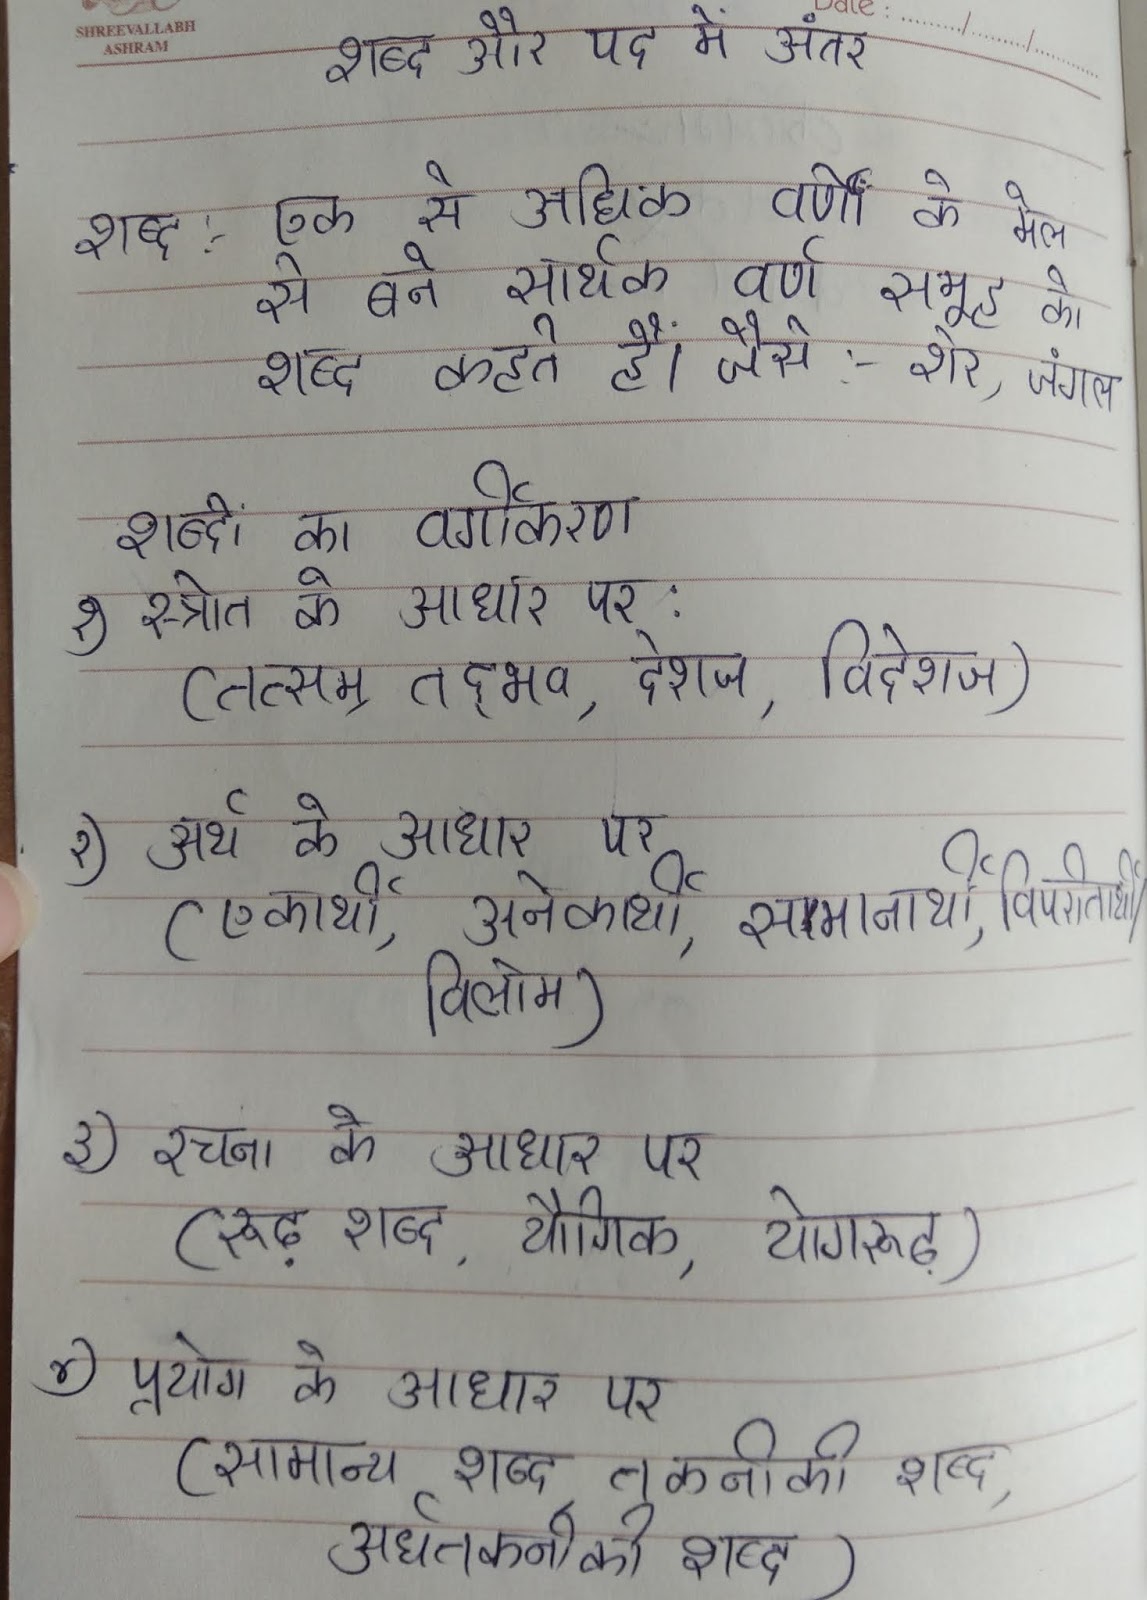 SHREEVALLABH
ASHRAM
Date : ......../......./...........
शब्द और पद में अंतर
शब्द :- एक से अधिक वर्णों के मेल
से बने सार्थक वर्ण समूह को
शब्द कहते हैं। जैसे :- शेर, जंगल
शब्दों का वर्गीकरण
१) स्त्रोत के आर्धार पर :
(तत्सम, तद्भव, देशज, विदेशज)
२) अर्थ के आधार पर
(एकार्थी, अनेकार्थी, सामानार्थी, विपरीतार्थी/
विलोम)
३) रचना के आधार पर
(रूढ़ शब्द, यौगिक, योगरूढ़)
४) प्रयोग के आधार पर
(सामान्य शब्द, तकनीकी शब्द,
अर्धतकनीकी शब्द)